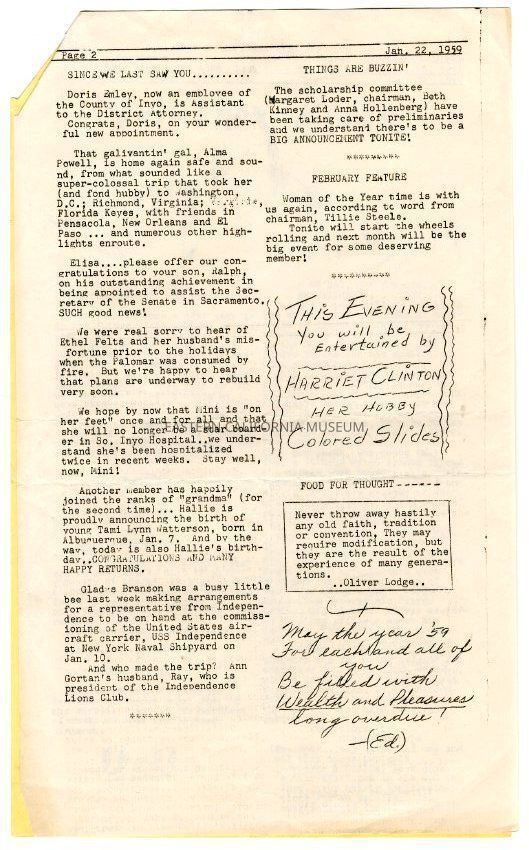 Page 2
Jan. 22, 1959
SINCE WE LAST SAW YOU..........
Doris Emley, now an employee of
the County of Inyo, is Assistant
to the District Attorney.
Congrats, Doris, on your wonder-
ful new appointment.
That galivantin' gal, Alma
Powell, is home again safe and sou-
nd, from what sounded like a
super-colossal trip that took her
(and fond hubby) to Washington,
D.C.; Richmond, Virginia;
Florida Keyes, with friends in
Pensacola, New Orleans and El
Paso ... and numerous other high-
lights enroute.
Elisa....please offer our con-
gratulations to your son, Ralph,
on his outstanding achievement in
being appointed to assist the Sec-
retary of the Senate in Sacramento.
SUCH good news!
We were real sorry to hear of
Ethel Felts and her husband's mis-
fortune prior to the holidays
when the Palomar was consumed by
fire. But we're happy to hear
that plans are underway to rebuild
very soon.
We hope by now that Mini is "on
her feet" once and for all and that
she will no longer be a star board-
er in So. Inyo Hospital..we under-
stand she's been hospitalized
twice in recent weeks. Stay well,
now, Mini!
Another member has happily
joined the ranks of "grandma" (for
the second time)... Hallie is
proudly announcing the birth of
young Tami Lynn Watterson, born in
Albuquerque, Jan. 7. And by the
way, today is also Hallie's birth-
day..CONGRATULATIONS AND MANY
HAPPY RETURNS.
Gladys Branson was a busy little
bee last week making arrangements
for a representative from Indepen-
dence to be on hand at the commiss-
ioning of the United States air-
craft carrier, USS Independence
at New York Naval Shipyard on
Jan. 10.
And who made the trip? Ann
Gortan's husband, Ray, who is
president of the Independence
Lions Club.
*******
THINGS ARE BUZZIN'
The scholarship committee
(Margaret Loder, chairman, Beth
Kinney and Anna Hollenberg) have
been taking care of preliminaries
and we understand there's to be a
BIG ANNOUNCEMENT TONITE!
*********
FEBRUARY FEATURE
Woman of the Year time is with
us again, according to word from
chairman, Tillie Steele.
Tonite will start the wheels
rolling and next month will be the
big event for some deserving
member!
**********
THIS EVENING
You will be
Entertained by
HARRIET CLINTON
HER HOBBY
Colored Slides
EASTERN CALIFORNIA MUSEUM
FOOD FOR THOUGHT------
Never throw away hastily
any old faith, tradition
or convention, They may
require modification, but
they are the result of the
experience of many genera-
tions.
..Oliver Lodge..
May the year '59
For each and all of
you
Be filled with
Wealth and Pleasures
long overdue!
-(Ed.)